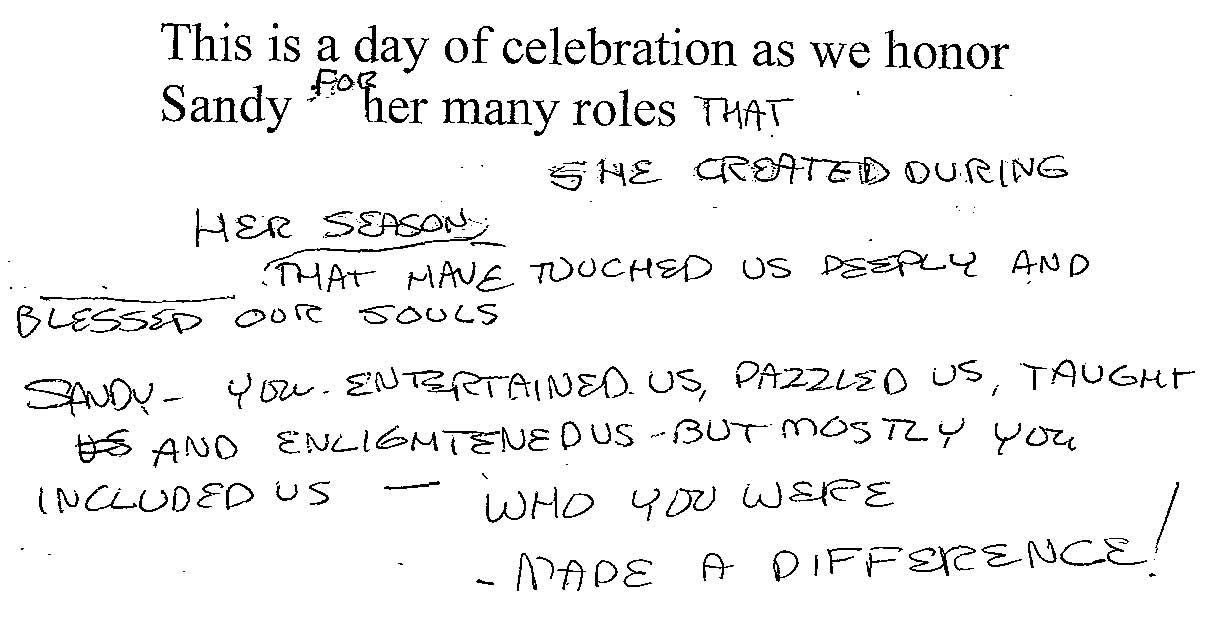 This is a day of celebration as we honor
Sandy FOR her many roles THAT
SHE CREATED DURING
HER SEASON
THAT HAVE TOUCHED US DEEPLY AND
BLESSED OUR SOULS
SANDY - YOU ENTERTAINED US, DAZZLED US, TAUGHT
US AND ENLIGHTENED US - BUT MOSTLY YOU
INCLUDED US — WHO YOU WERE
- MADE A DIFFERENCE!